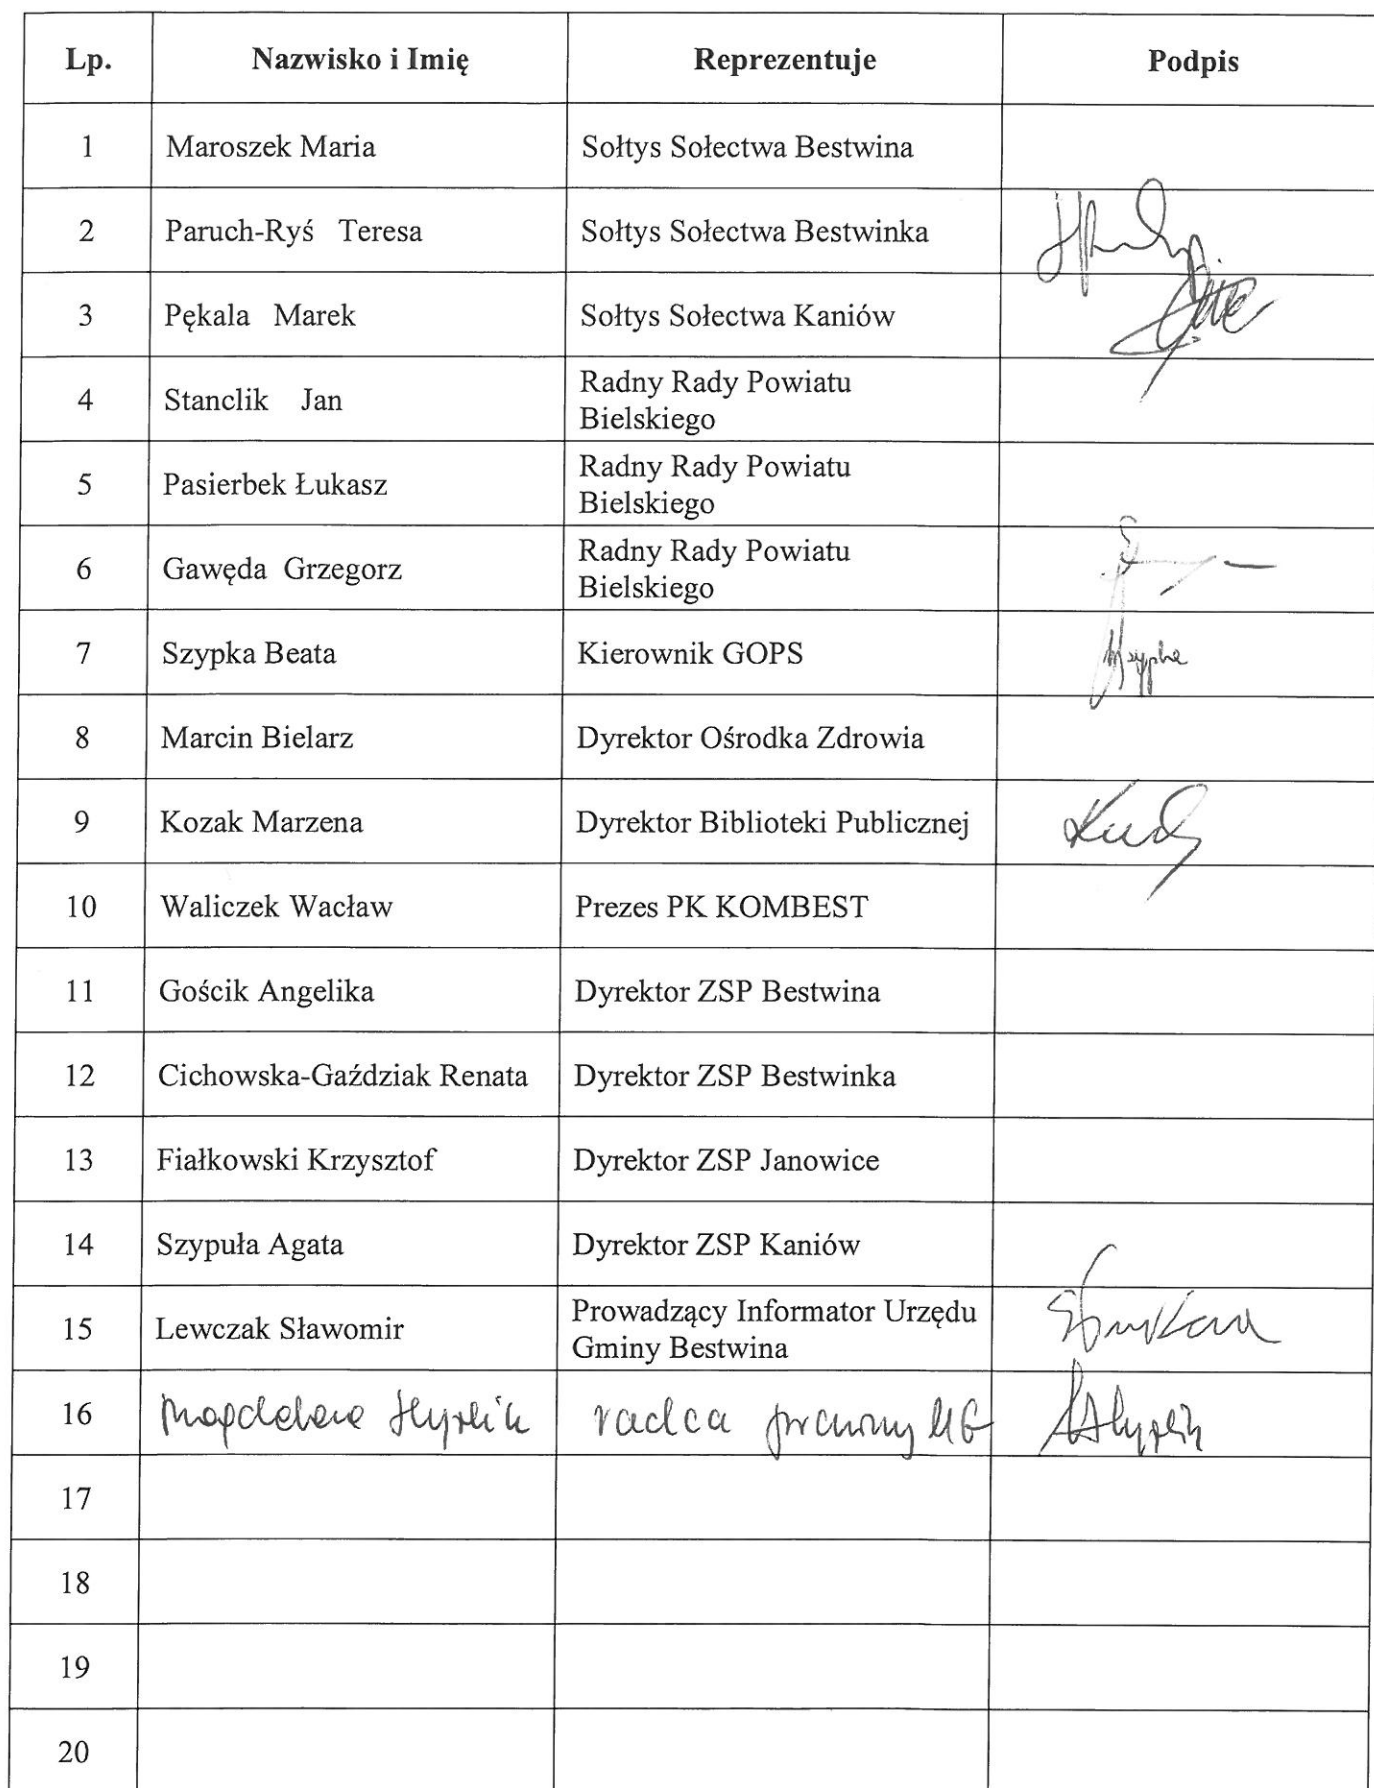 Lp. Nazwisko i Imię Reprezentuje Podpis
1 Maroszek Maria Sołtys Sołectwa Bestwina
2 Paruch-Ryś Teresa Sołtys Sołectwa Bestwinka
3 Pękala Marek Sołtys Sołectwa Kaniów
4 Stanclik Jan Radny Rady Powiatu
Bielskiego
5 Pasierbek Łukasz Radny Rady Powiatu
Bielskiego
6 Gawęda Grzegorz Radny Rady Powiatu
Bielskiego
7 Szypka Beata Kierownik GOPS
8 Marcin Bielarz Dyrektor Ośrodka Zdrowia
9 Kozak Marzena Dyrektor Biblioteki Publicznej
10 Waliczek Wacław Prezes PK KOMBEST
11 Gościk Angelika Dyrektor ZSP Bestwina
12 Cichowska-Gaździak Renata Dyrektor ZSP Bestwinka
13 Fiałkowski Krzysztof Dyrektor ZSP Janowice
14 Szypuła Agata Dyrektor ZSP Kaniów
15 Lewczak Sławomir Prowadzący Informator Urzędu
Gminy Bestwina
16 Magdalena radca prawny UG
17
18
19
20